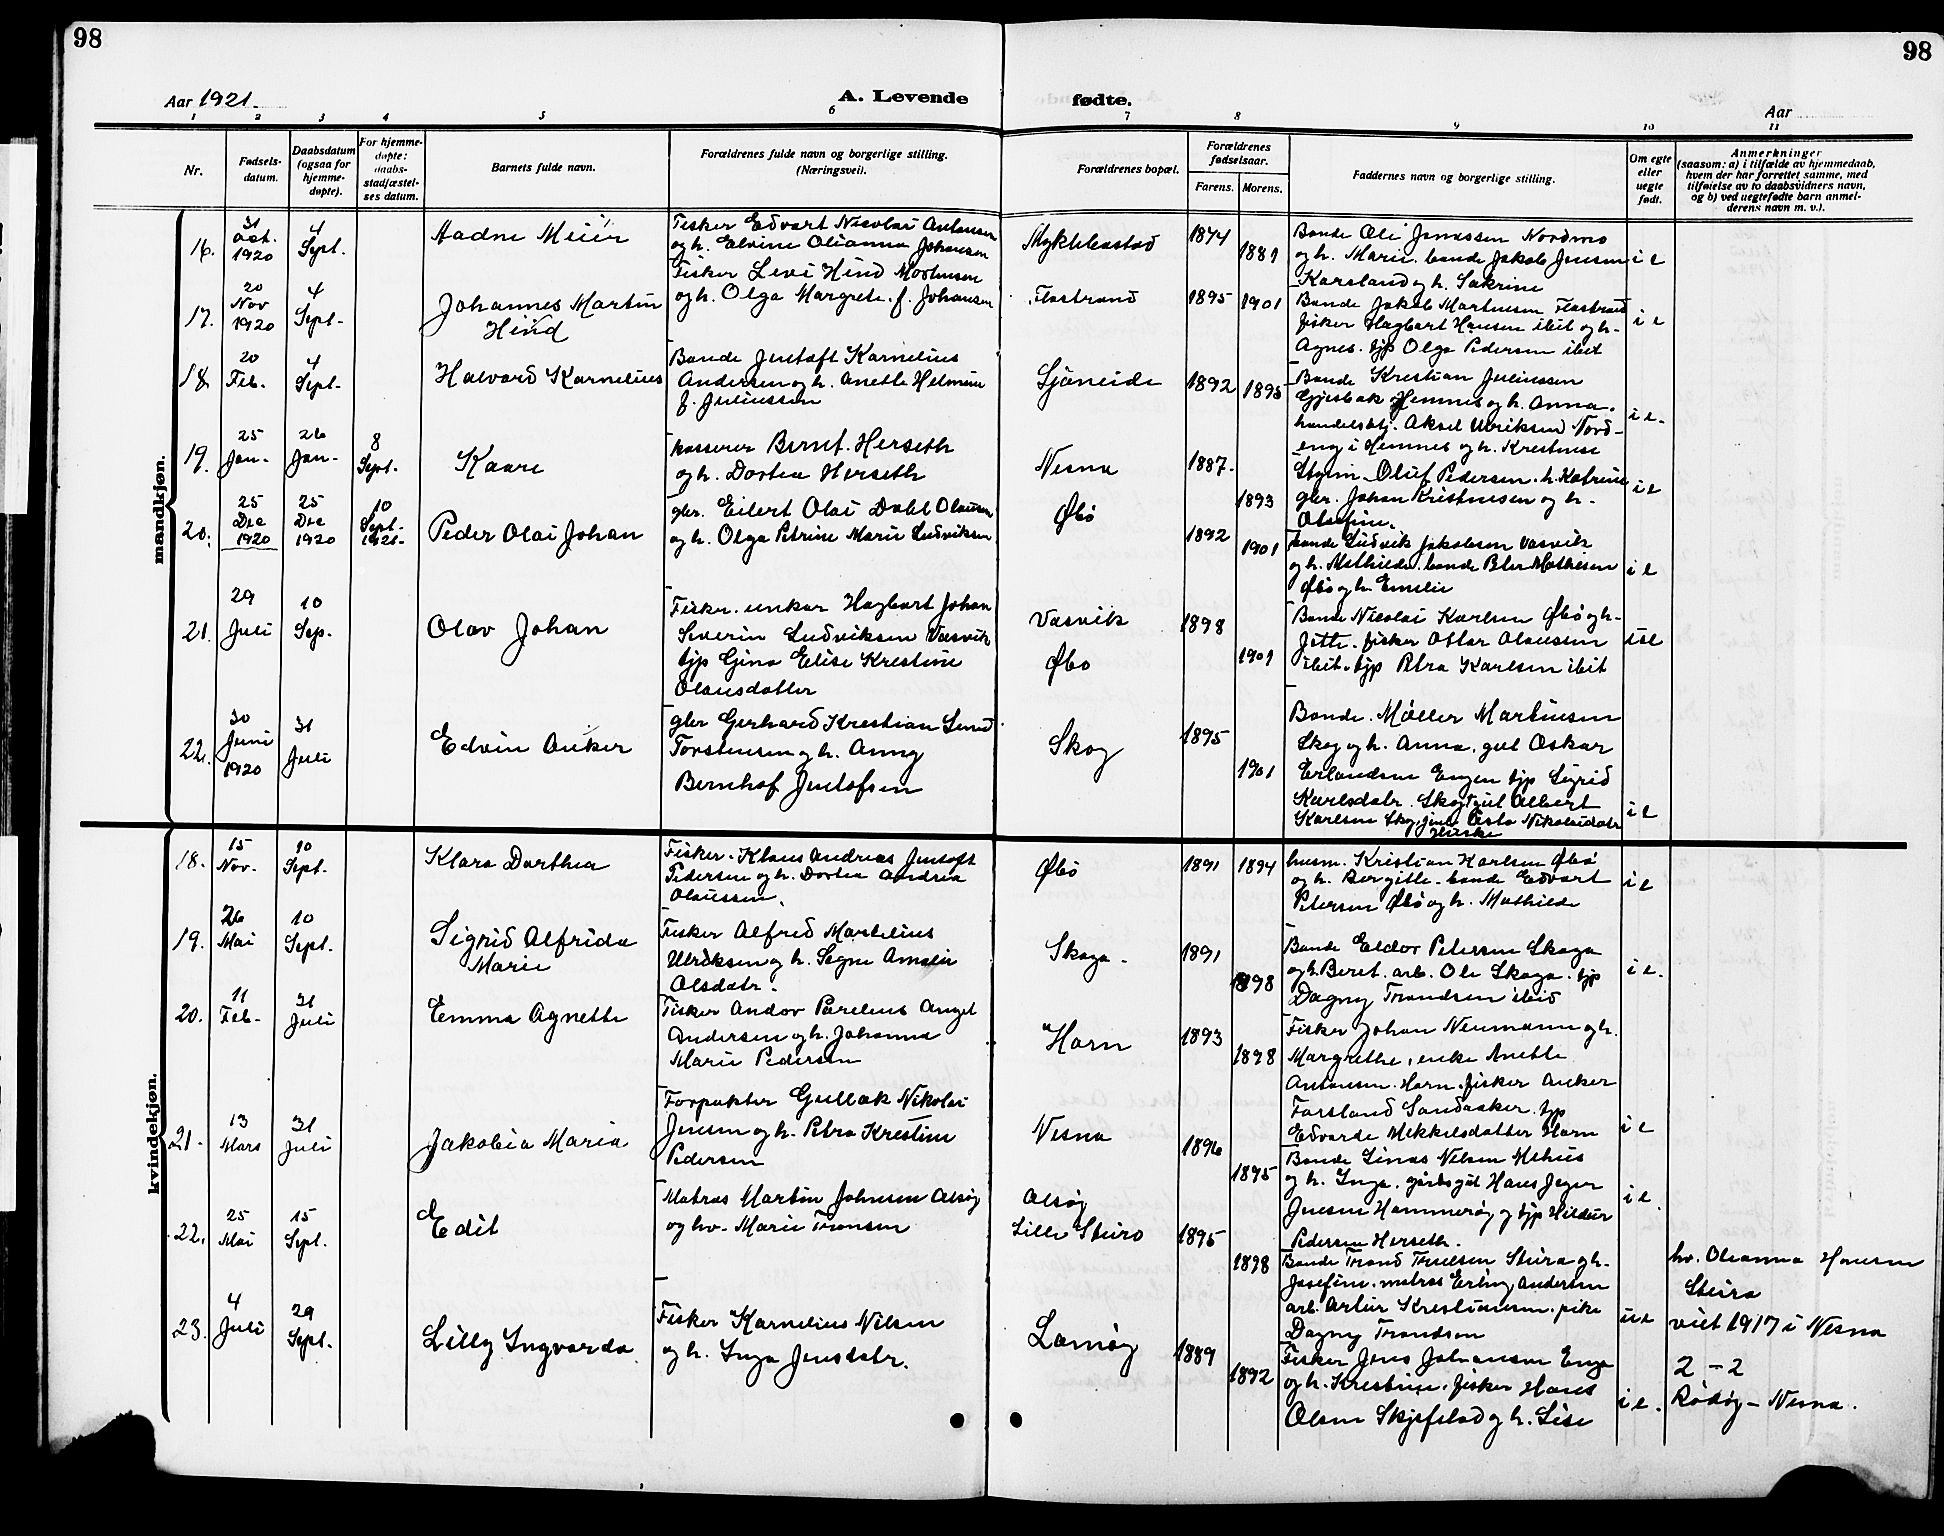 98
98
Aar 1921.
A. Levende
fødte.
Aar
1 2 3 4 5 6 7 8 9 10 11
Nr.
Fødsels-
datum.
Daabsdatum
(ogsaa for
hjemme-
døpte).
For hjemme-
døpte:
daabs-
stadfæstel-
ses datum.
Barnets fulde navn.
Forældrenes fulde navn og borgerlige stilling.
(Næringsvei).
Forældrenes bopæl.
Forældrenes
fødselsaar.
Farens. Morens.
Faddernes navn og borgerlige stilling.
Om egte
eller
uegte
født.
Anmerkninger
(saasom: a) i tilfælde av hjemmedaab,
hvem der har forrettet samme, med
tilføielse av to daabsvidners navn,
og b) ved uegtefødte barn anmel-
derens navn m. v.).
mandkjøn.
16.
31
Oct.
1920
4
Sept.
Aadne Meier
Fisker Edvart Nicolai Antonsen
og h. Elvine Olianna Johansen
Myklebostad
1874
1881
Bonde Oli Jonassen Nordmo
og h. Marie. bonde Jakob Jensen
Karsland og h. Sakrine
i e
17.
20
Nov
1920
4
Sept.
Johannes Martin
Hind
Fisker Levi Hind Mortensen
og h. Olga Margrete f. Johansen
Flostrand
1895
1901
Bonde Jakob Martinsen Flostrand
fisker Hagbart Hansen ibit og h.
Agnes. tjp Olga Pedersen ibit
i e
18.
20
Feb.
4
Sept.
Halvard Kornelius
Bonde Justoft Kornelius
Andersen og h. Anette Helmine
f. Juliussen
Sjöneide
1892
1895
Bonde Krestian Juliussen
Gjesbak Hemnes og h. Anna.
handelsbtj. Aksel Ulriksen Nord-
eng i Hemnes og h. Krestine
i e.
19.
25
Jan.
26
Jan.
8
Sept.
Kaare
kasserer Bernt Herseth
og h. Dortea Herseth
Nesna
1887.
1893
Olüf Pedersen. h. Katrine
gbr. Johan Kristensen og h.
Olufine.
i e
20.
25
Dec
1920
25
Dec
1920
10
Sept.
1921.
Peder Olai Johan
gbr. Eilert Olai Dahl Olausen
og h. Olga Petrine Marie Ludviksen
Øbö
1892
1901
bonde Ludvik Jakobsen Vasvik
og h. Mathilde. bonde Peter Mathisen
Øbö og h. Emelie
i e
21.
29
Juli
10
Sep.
Olav Johan
Fisker. unkar Hagbart Johan
Severin Ludviksen Vasvik
tjp Gina Elise Krestine
Olausdatter
Vasvik
Øbo
1898
1901
Bonde Nicolai Karlsen Øbö og h.
Jette. fisker Ottar Olausen
ibit. tjp Petra Karlsen ibit
u e
22.
30
Juni
1920
31
Juli
Edvin Anker
gbr Gerhard Krestian Lund
Torstensen og h. Anny
Bernhof Justofsen
Skog
1895
1901
Bonde. Møller Martinsen
Skog og h. Anna. gut Oskar
Erlandsen Engen tjp Sigrid
Karlsdatr. Skog gut Albert
Karlsen Skog, Asta Nikolaidatr
i e
kvindekjøn.
18.
15
Nov.
10
Sept.
Klara Dorthea
Fisker. Klaus Andreas Justoft
Pedersen og h. Dortea Andrea
Olaussen.
Øbö
1891
1894
husm. Kristian Karlsen Øbö
og h. Bergitte. bonde Edvart
Petersen Øbö og h. Mathilde
i e
19.
26
Mai
10
Sept.
Sigrid Alfrida
Marie
Fisker Alfred Martelius
Ulriksen og h. Signe Amalie
Olsdatr.
Skaga.
1891
1898
Bonde Eldor Petersen Skaga
og h. Beret. arb. Ole Skaga. tjp
Dagny Trondsen ibid
i e.
20.
11
Feb.
31
Juli
Emma Agnethe
Fisker Andor Parelius Angel
Andersen og h. Johanna
Marie Pedersen
Horn
1893
1898
Fisker Johan Neumann og h.
Margrethe, enke Anette
Antonsen. Horn. fisker Anker
Forsland Sandaaker. tjp
Edvarde Mikkelsdatter Horn
i e
21.
13
Mars
31
Juli
Jakobia Maria
Forpakter Gullak Nikolai
Jensen og h. Petra Krestine
Pedersen
Nesna
1896
1895
Bonde Linas Nilsen
og h. Inga. gårdsgut Hans Jeger
Jensen Hammerøy og tjp Hildur
Pedersen Herseth.
i e.
22.
25
Mai
15
Sept.
Edit
Matros Martin Johnsen Alsøy
og hv. Marie Tronsen
Alsøy
Lille Sturo
1895
1898
Bonde Trond Truelsen Stüra og h.
Josefine. matros Erling Andersen
arb. Artur Krestiansen. pike
Dagny Trondsen
u e
hv. Oleanna Hansen
Stüra
viet 1917 i Nesna
23.
4
Juli
29
Sept.
Lilly Ingvarda
Fisker Karnelius Nilsen
og h. Inga Jensdatr.
Lamøy
1889
1892
Fisker Jens Johansen Enge
og h. Krestine. fisker Hans
Olsen Skjefstad og h. Lise
i e.
2 – 2
Rödøy – Nesna.